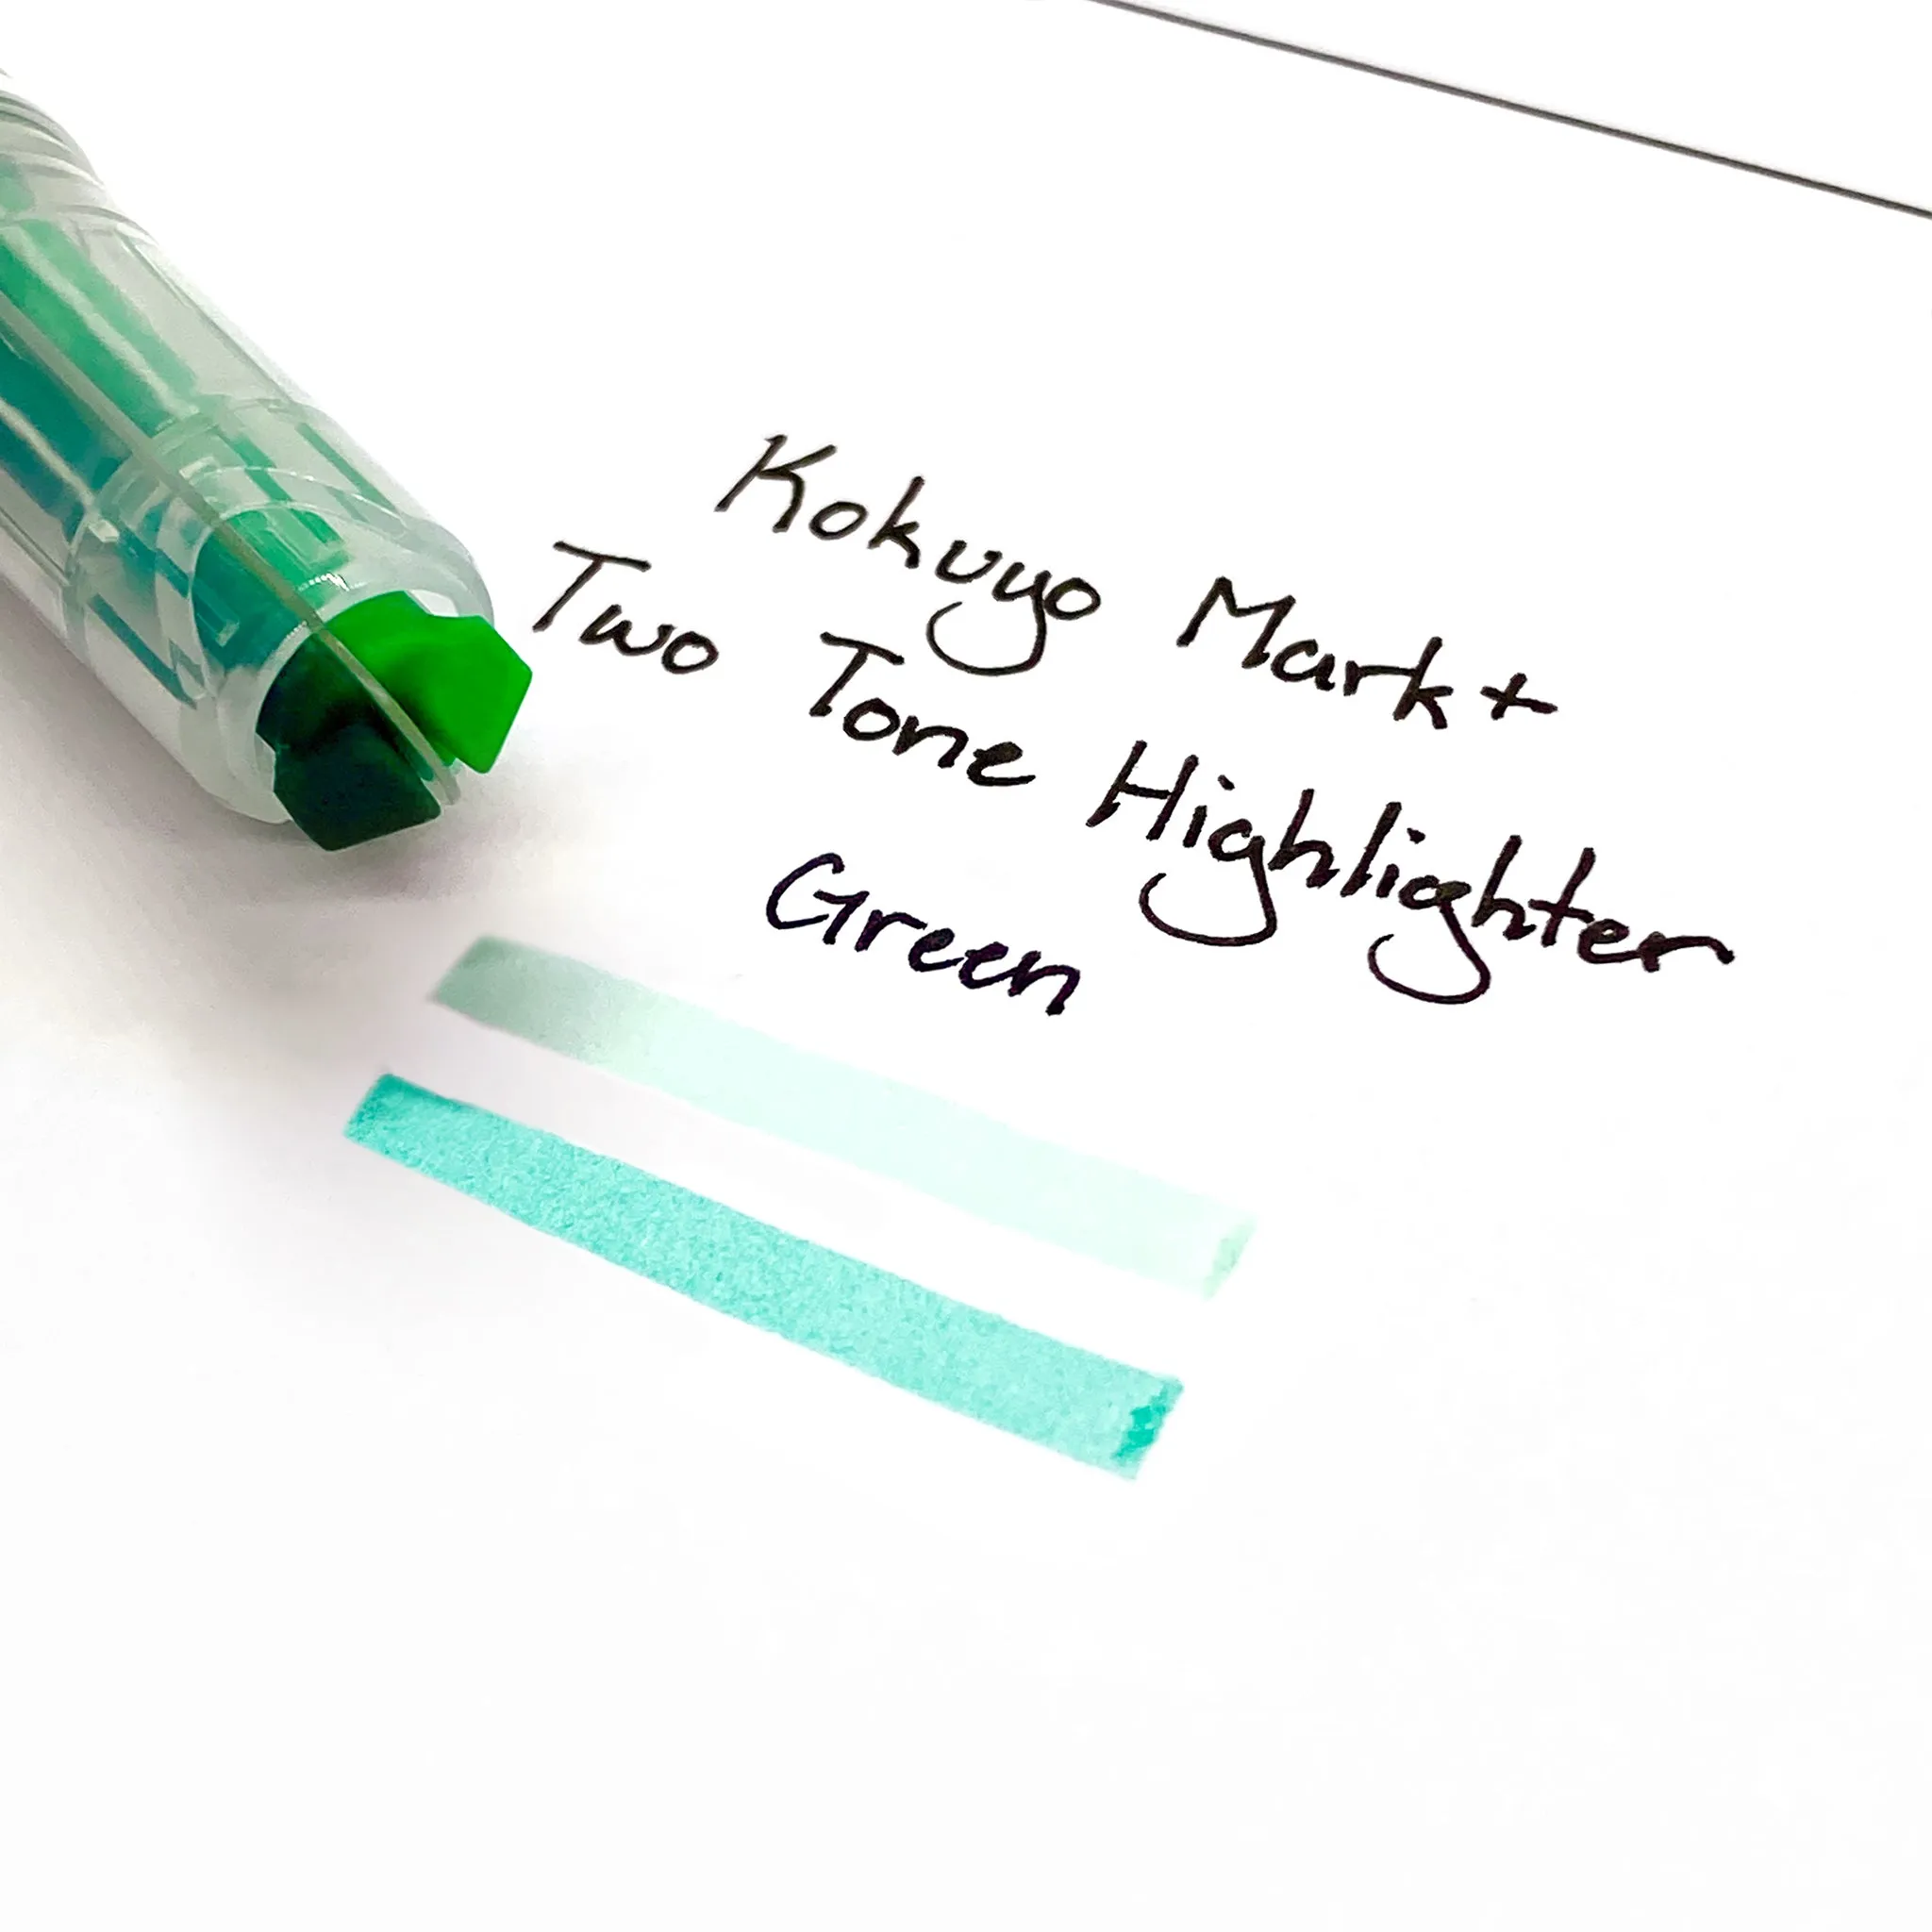 Kokuyo Mark+
Two Tone Highlighter
Green